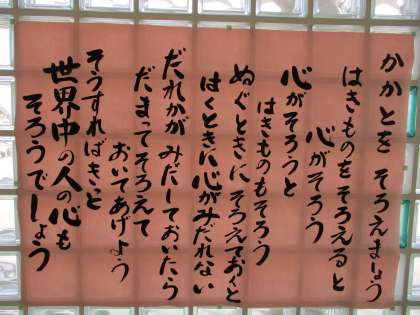 かかとを そろえましょう
はきものをそろえると
心がそろう
心がそろうと
はきものもそろう
ぬぐときに そろえておくと
はくときに心がみだれない
だれかが みだしておいたら
だまてそろえて
おいてあげよう
そうすればきと
世界中の人の心も
そろうでしょう